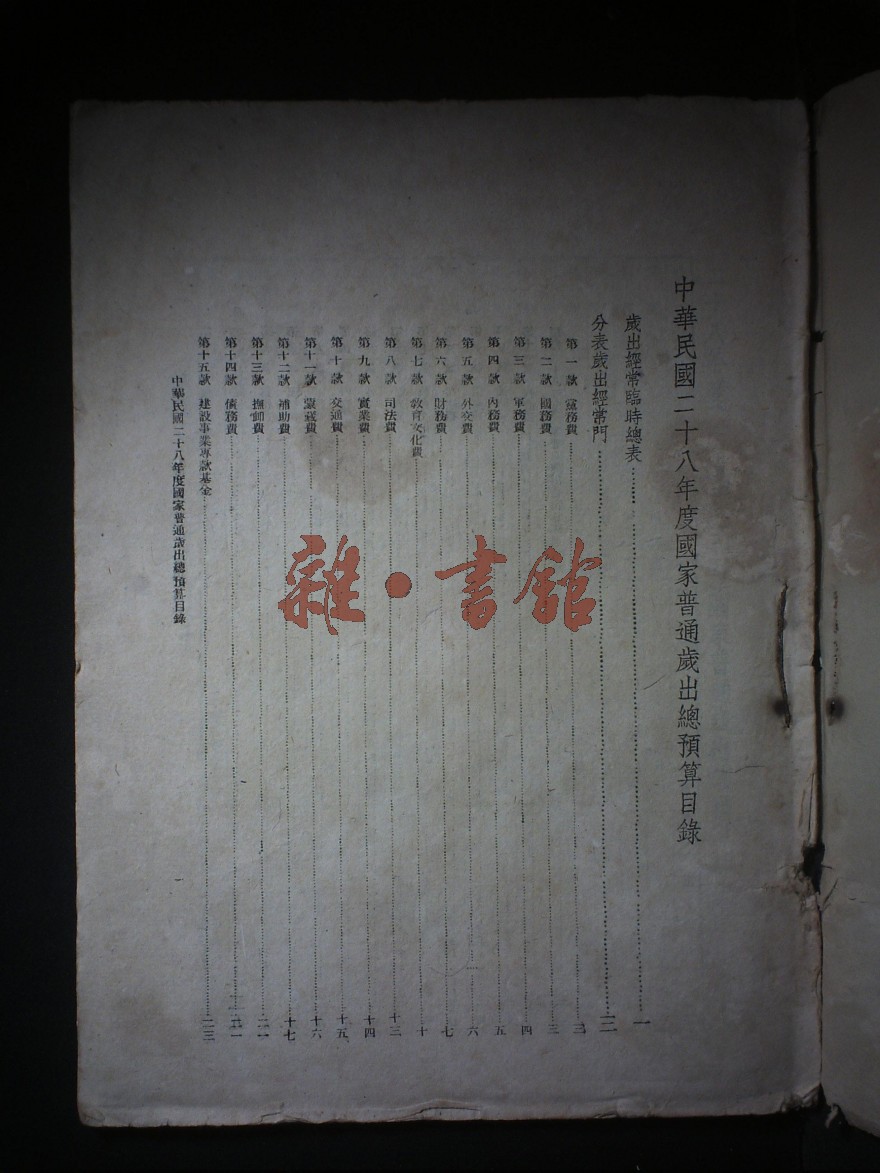 中華民國二十八年度國家普通歲出總預算目錄
歲出經常臨時總表 一
分表歲出經常門
第一款 黨務費 三
第二款 國務費 三
第三款 軍務費 四
第四款 內務費 五
第五款 外交費 六
第六款 財務費 七
第七款 教育文化費 十
第八款 司法費 十三
第九款 實業費 十四
第十款 交通費 十五
第十一款 蒙藏費 十六
第十二款 補助費 十七
第十三款 撫卹費
第十四款 債務費
第十五款 建設事業專款基金 二三
中華民國二十八年度國家普通歲出總預算目錄
雜·書館